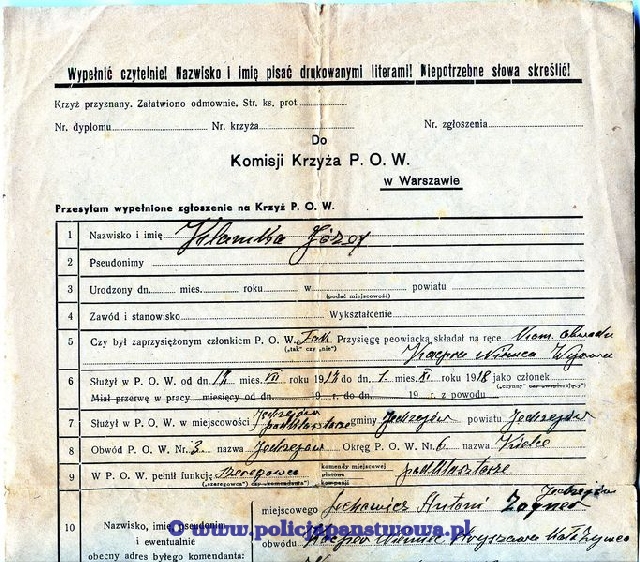 Wypełnić czytelnie! Nazwisko i imię pisać drukowanymi literami! Niepotrzebne słowa skreślić!
Krzyż przyznany. Załatwiono odmownie. Str. ks. prot.
Nr. dyplomu Nr. krzyża Nr. zgłoszenia
Do
Komisji Krzyża P. O. W.
w Warszawie
Przesyłam wypełnione zgłoszenie na Krzyż P. O. W.
1 Nazwisko i imię Klamka Józef
2 Pseudonimy
3 Urodzony dn. mies. roku w powiatu
(podać miejscowość)
4 Zawód i stanowisko Wykształcenie
5 Czy był zaprzysiężonym członkiem P. O. W. Tak Przysięgę peowiacką składał na ręce Kom. Obwodu
("tak" czy "nie") Kacpra Niemca
6 Służył w P. O. W. od dn. 17 mies. VII roku 1917 do dn. 1 mies. XI roku 1918 jako członek
Miał przerwę w pracy miesięcy od dn. 9 r. do dn. 19 r. z powodu
7 Służył w P. O. W. w miejscowości Jędrzejów podklasztorze gminy Jędrzejów powiatu Jędrzejów
8 Obwód P. O. W. Nr. 3 nazwa Jędrzejów Okręg P. O. W. Nr. 6 nazwa Kielce
9 W P. O. W. pełnił funkcję Szeregowca komendy miejscowej podklasztorze
10 Nazwisko, imię, pseudonim
i ewentualnie
obecny adres byłego komendanta:
miejscowego Antoni Jędrzejów
obwodu Kacper Niemiec
© www.policjapanstwowa.pl